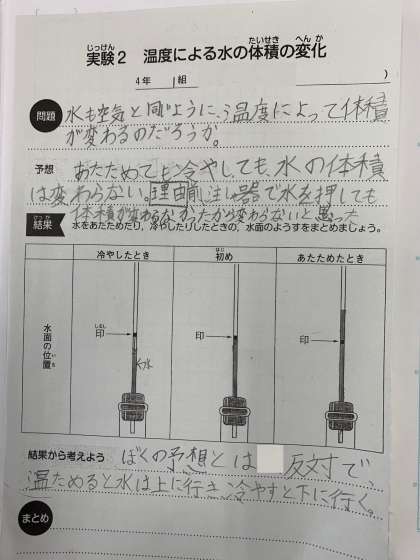 実験2 温度による水の体積の変化
4年 1組 )
問題 水も空気と同じように、温度によって体積
が変わるのだろうか。
予想 あたためても冷やしても、水の体積
は変わらない。理由前に注しゃ器で水を押しても
体積が変わらなかったから変わらないと思った
結果 水をあたためたり、冷やしたりしたときの、水面のようすをまとめましょう。
冷やしたとき 初め あたためたとき
水面の位置 印 印 印
水
結果から考えよう ぼくの予想とは 反対で、
温ためると水は上に行き、冷やすと下に行く。
まとめ